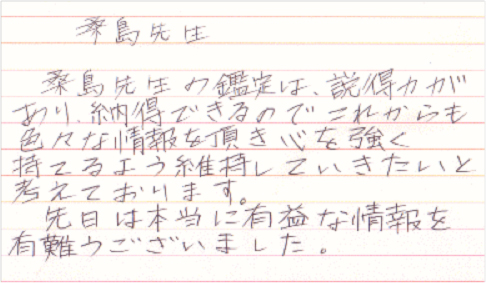 桑島先生
桑島先生の鑑定は、説得力が
あり、納得できるのでこれからも
色々な情報を頂き心を強く
持てるよう維持していきたいと
考えております。
先日は本当に有益な情報を
有難うございました。